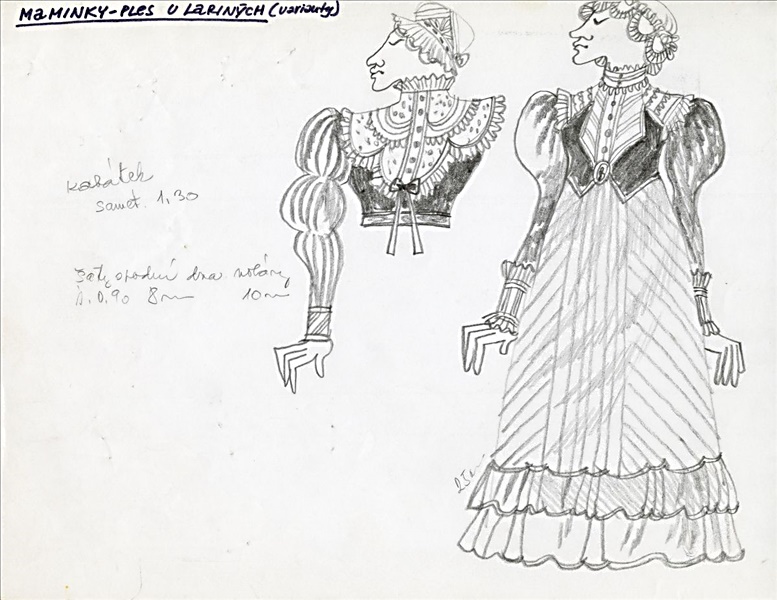 MAMINKY-PLES U LARINÝCH (varianty)
Kabátek
samet. 1,30
Šaty spodní dva volány
0.90 8m 10m